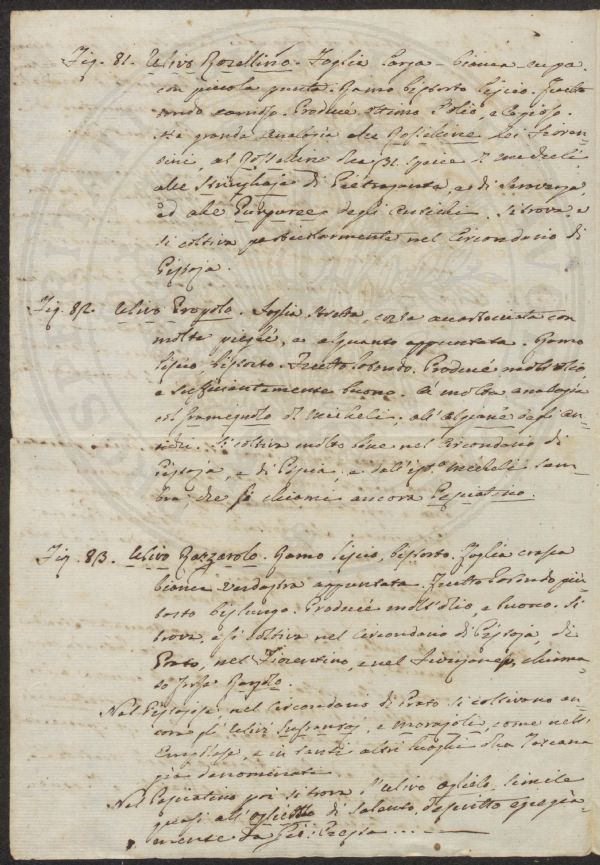 Fig. 81. Ulivo Rosellino. Foglia larga - bianca cupa.
con piccola punta. Ramo bistorto liscio. Frutto
tondo carnoso. Produce ottimo Olio, e copioso.
Ha grande analogia alle Rossellini dei Fioren-
tini, al Rossellino della 31 specie di Micheli,
alle di Pietrasanta, e di Seravezza,
ed alle degli Antichi. Si trova, e
si coltiva particolarmente nel Circondario di
Pistoja.
Fig. 82. Ulivo Foglia stretta corta accartocciata con
molte pieghe, e alquanto appuntata. Ramo
liscio, bistorto. Frutto rotondo. Produce molt'olio,
e sufficientemente buono. A molta analogia
col Gramignolo di Micheli, all' degli An-
tichi. Si coltiva molto bene nel Circondario di
Pistoja, e di Pescia, e dall' Micheli sem-
bra, che si chiami ancora Pesciatino.
Fig. 83. Ulivo Razzarolo. Ramo liscio, bistorto. Foglia crassa
bianca verdastra appuntata. Frutto rotondo piut-
tosto bislungo. Produce molt'olio, e buono. Si
trova, e si coltiva nel Circondario di Pistoja, di
Prato, nel Fiorentino, e nel chiama-
to
Nel Pistojese nel Circondario di Prato si coltivano an-
cora gli Ulivi e Morajoli, come nell'
e in tanti altri luoghi della Toscana
già denominati
Nel Pesciatino poi si trova l'Ulivo simile
quasi all' di Salento, descritto egregia-
mente da Presta